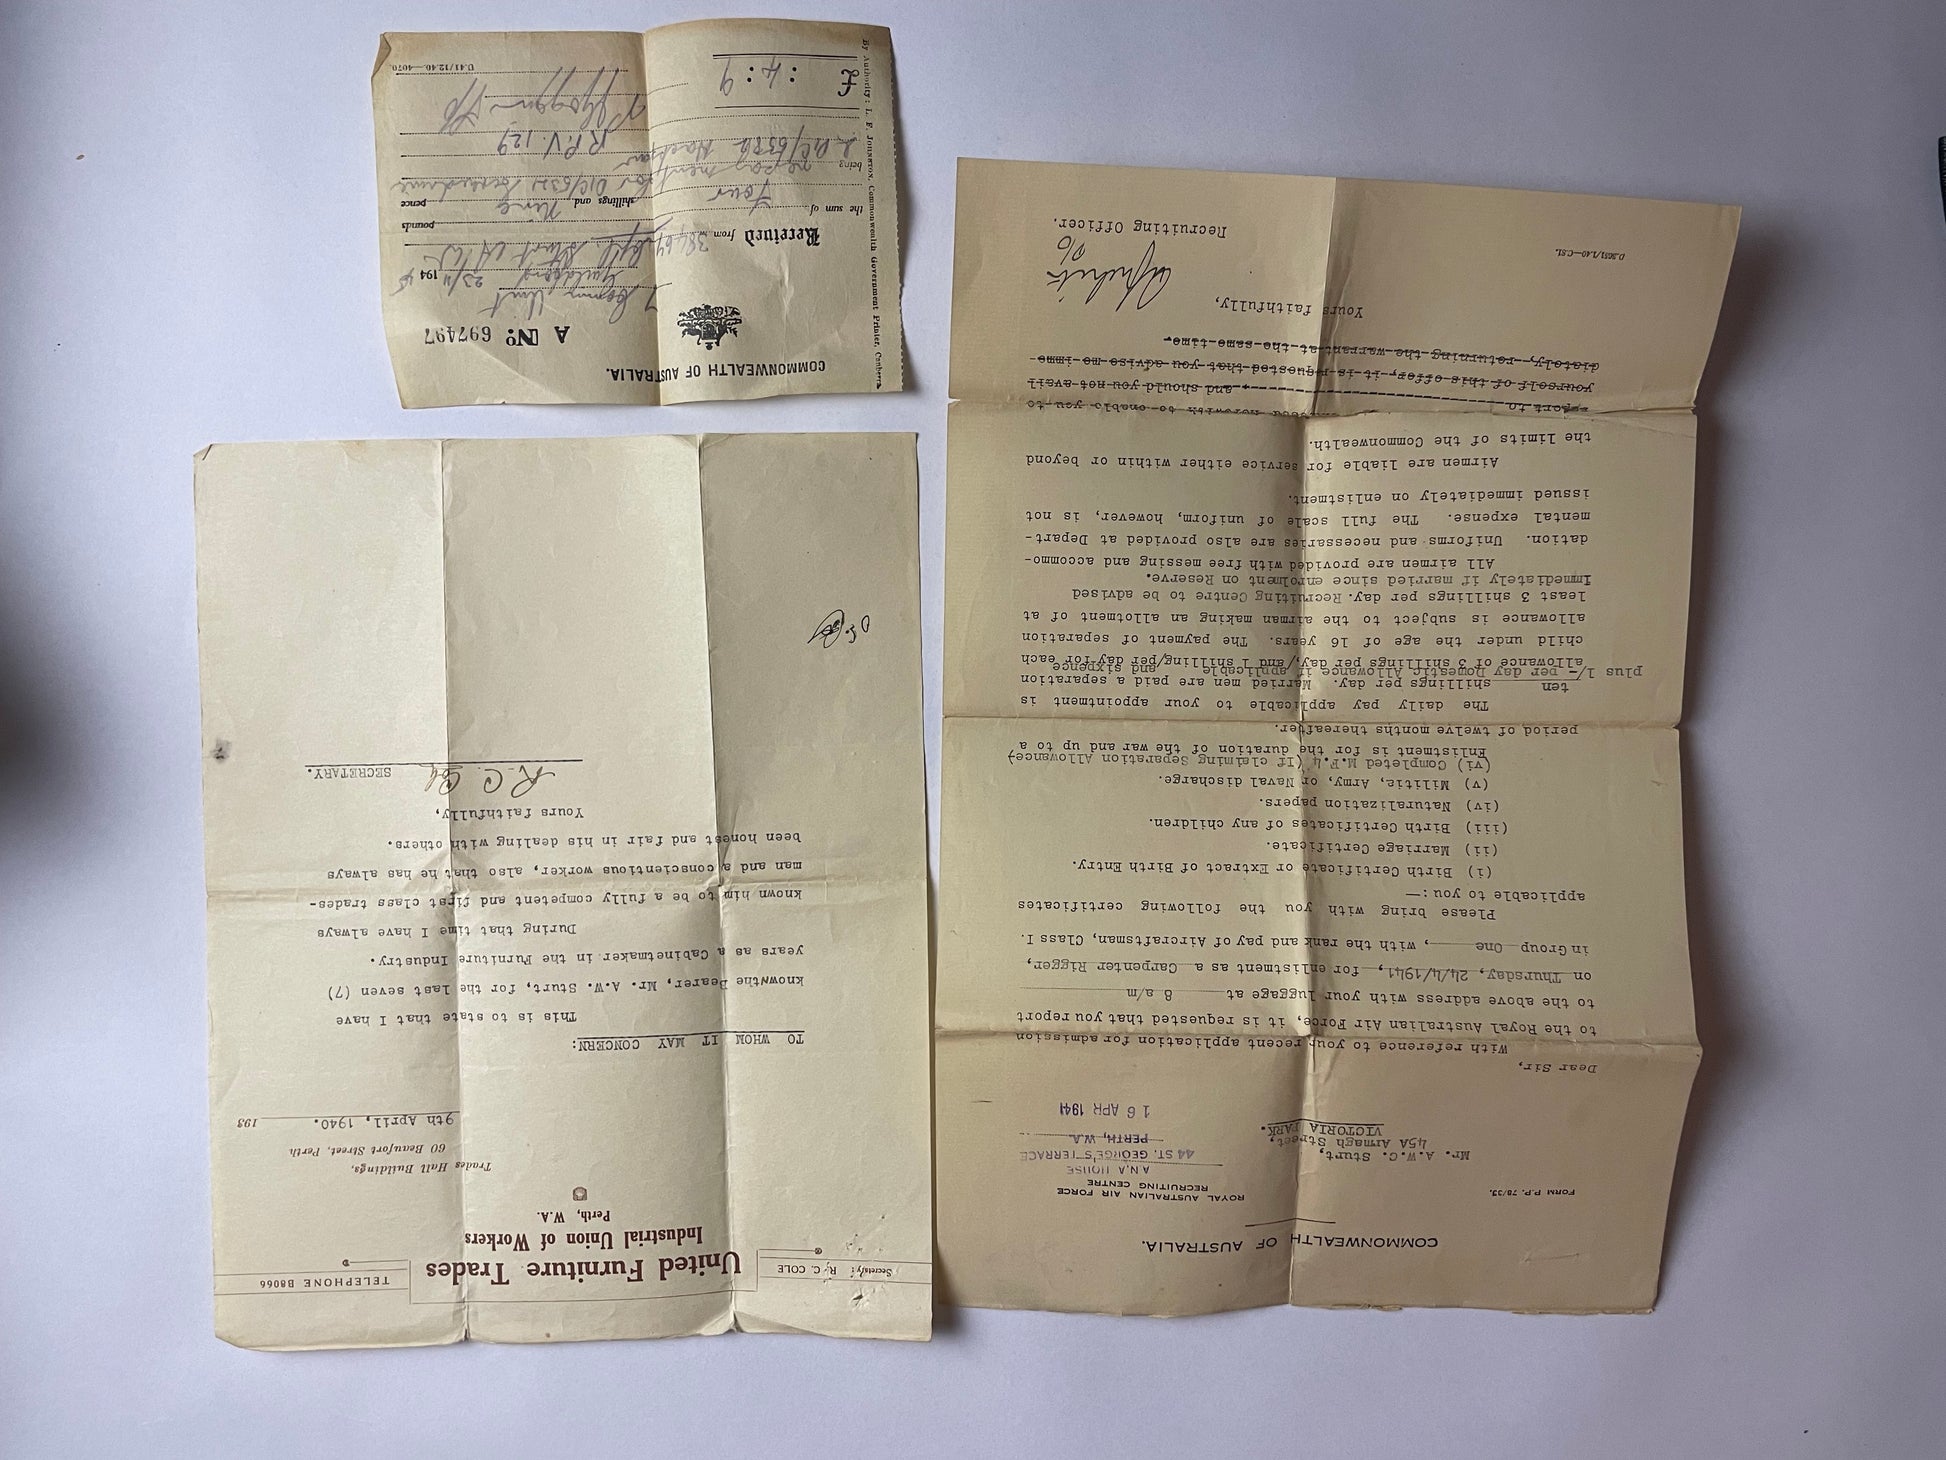 COMMONWEALTH OF AUSTRALIA.
A No. 697497
Unit
Guildford 23/11 1945
Received from 38464 Sturt A W C
pounds
the sum of Four shillings and Nine pence
being repayment for
R.P.V. 129
£ : 4 : 9
U.41/12.40.—4070.
By Authority: L. F. Johnston, Commonwealth Government Printer, Canberra
COMMONWEALTH OF AUSTRALIA.
FORM P.P. 78/33.
ROYAL AUSTRALIAN AIR FORCE
RECRUITING CENTRE
A.N.A HOUSE
44 ST. GEORGE'S TERRACE
PERTH, W.A.
16 APR 1941
Mr. A.W.C. Sturt,
45A Armagh Street,
VICTORIA PARK.
Dear Sir,
With reference to your recent application for admission
to the Royal Australian Air Force, it is requested that you report
to the above address with your luggage at 8 a/m
on Thursday, 24/4/1941, for enlistment as a Carpenter Rigger,
in Group One, with the rank and pay of Aircraftsman, Class I.
Please bring with you the following certificates
applicable to you:—
(i) Birth Certificate or Extract of Birth Entry.
(ii) Marriage Certificate.
(iii) Birth Certificates of any children.
(iv) Naturalization papers.
(v) Militia, Army, or Naval discharge.
(vi) Completed M.F.4 (If claiming Separation Allowance)
Enlistment is for the duration of the war and up to a
period of twelve months thereafter.
The daily pay applicable to your appointment is
ten shillings per day. Married men are paid a separation
plus 1/- per day Domestic Allowance if applicable and sixpence
allowance of 3 shillings per day,/and 1 shilling/per day for each
child under the age of 16 years. The payment of separation
allowance is subject to the airman making an allotment of at
least 3 shillings per day. Recruiting Centre to be advised
Immediately if married since enrolment on Reserve.
All airmen are provided with free messing and accommo-
dation. Uniforms and necessaries are also provided at Depart-
mental expense. The full scale of uniform, however, is not
issued immediately on enlistment.
Airmen are liable for service either within or beyond
the limits of the Commonwealth.
herewith to enable you to
report to , and should you not avail
yourself of this offer, it is requested that you advise me imme-
diately, returning the warrant at the same time.
Yours faithfully,
F/O
Recruiting Officer.
D.3651/1.40—C.51.
Secretary: R. C. COLE
TELEPHONE B8066
United Furniture Trades
Industrial Union of Workers
Perth, W.A.
Trades Hall Buildings,
60 Beaufort Street, Perth
9th April, 1940. 193
TO WHOM IT MAY CONCERN:
This is to state that I have
know the Bearer, Mr. A.W. Sturt, for the last seven (7)
years as a Cabinetmaker in the Furniture Industry.
During that time I have always
known him to be a fully competent and first class trades-
man and a conscientious worker, also that he has always
been honest and fair in his dealing with others.
Yours faithfully,
R. C. Cole SECRETARY.